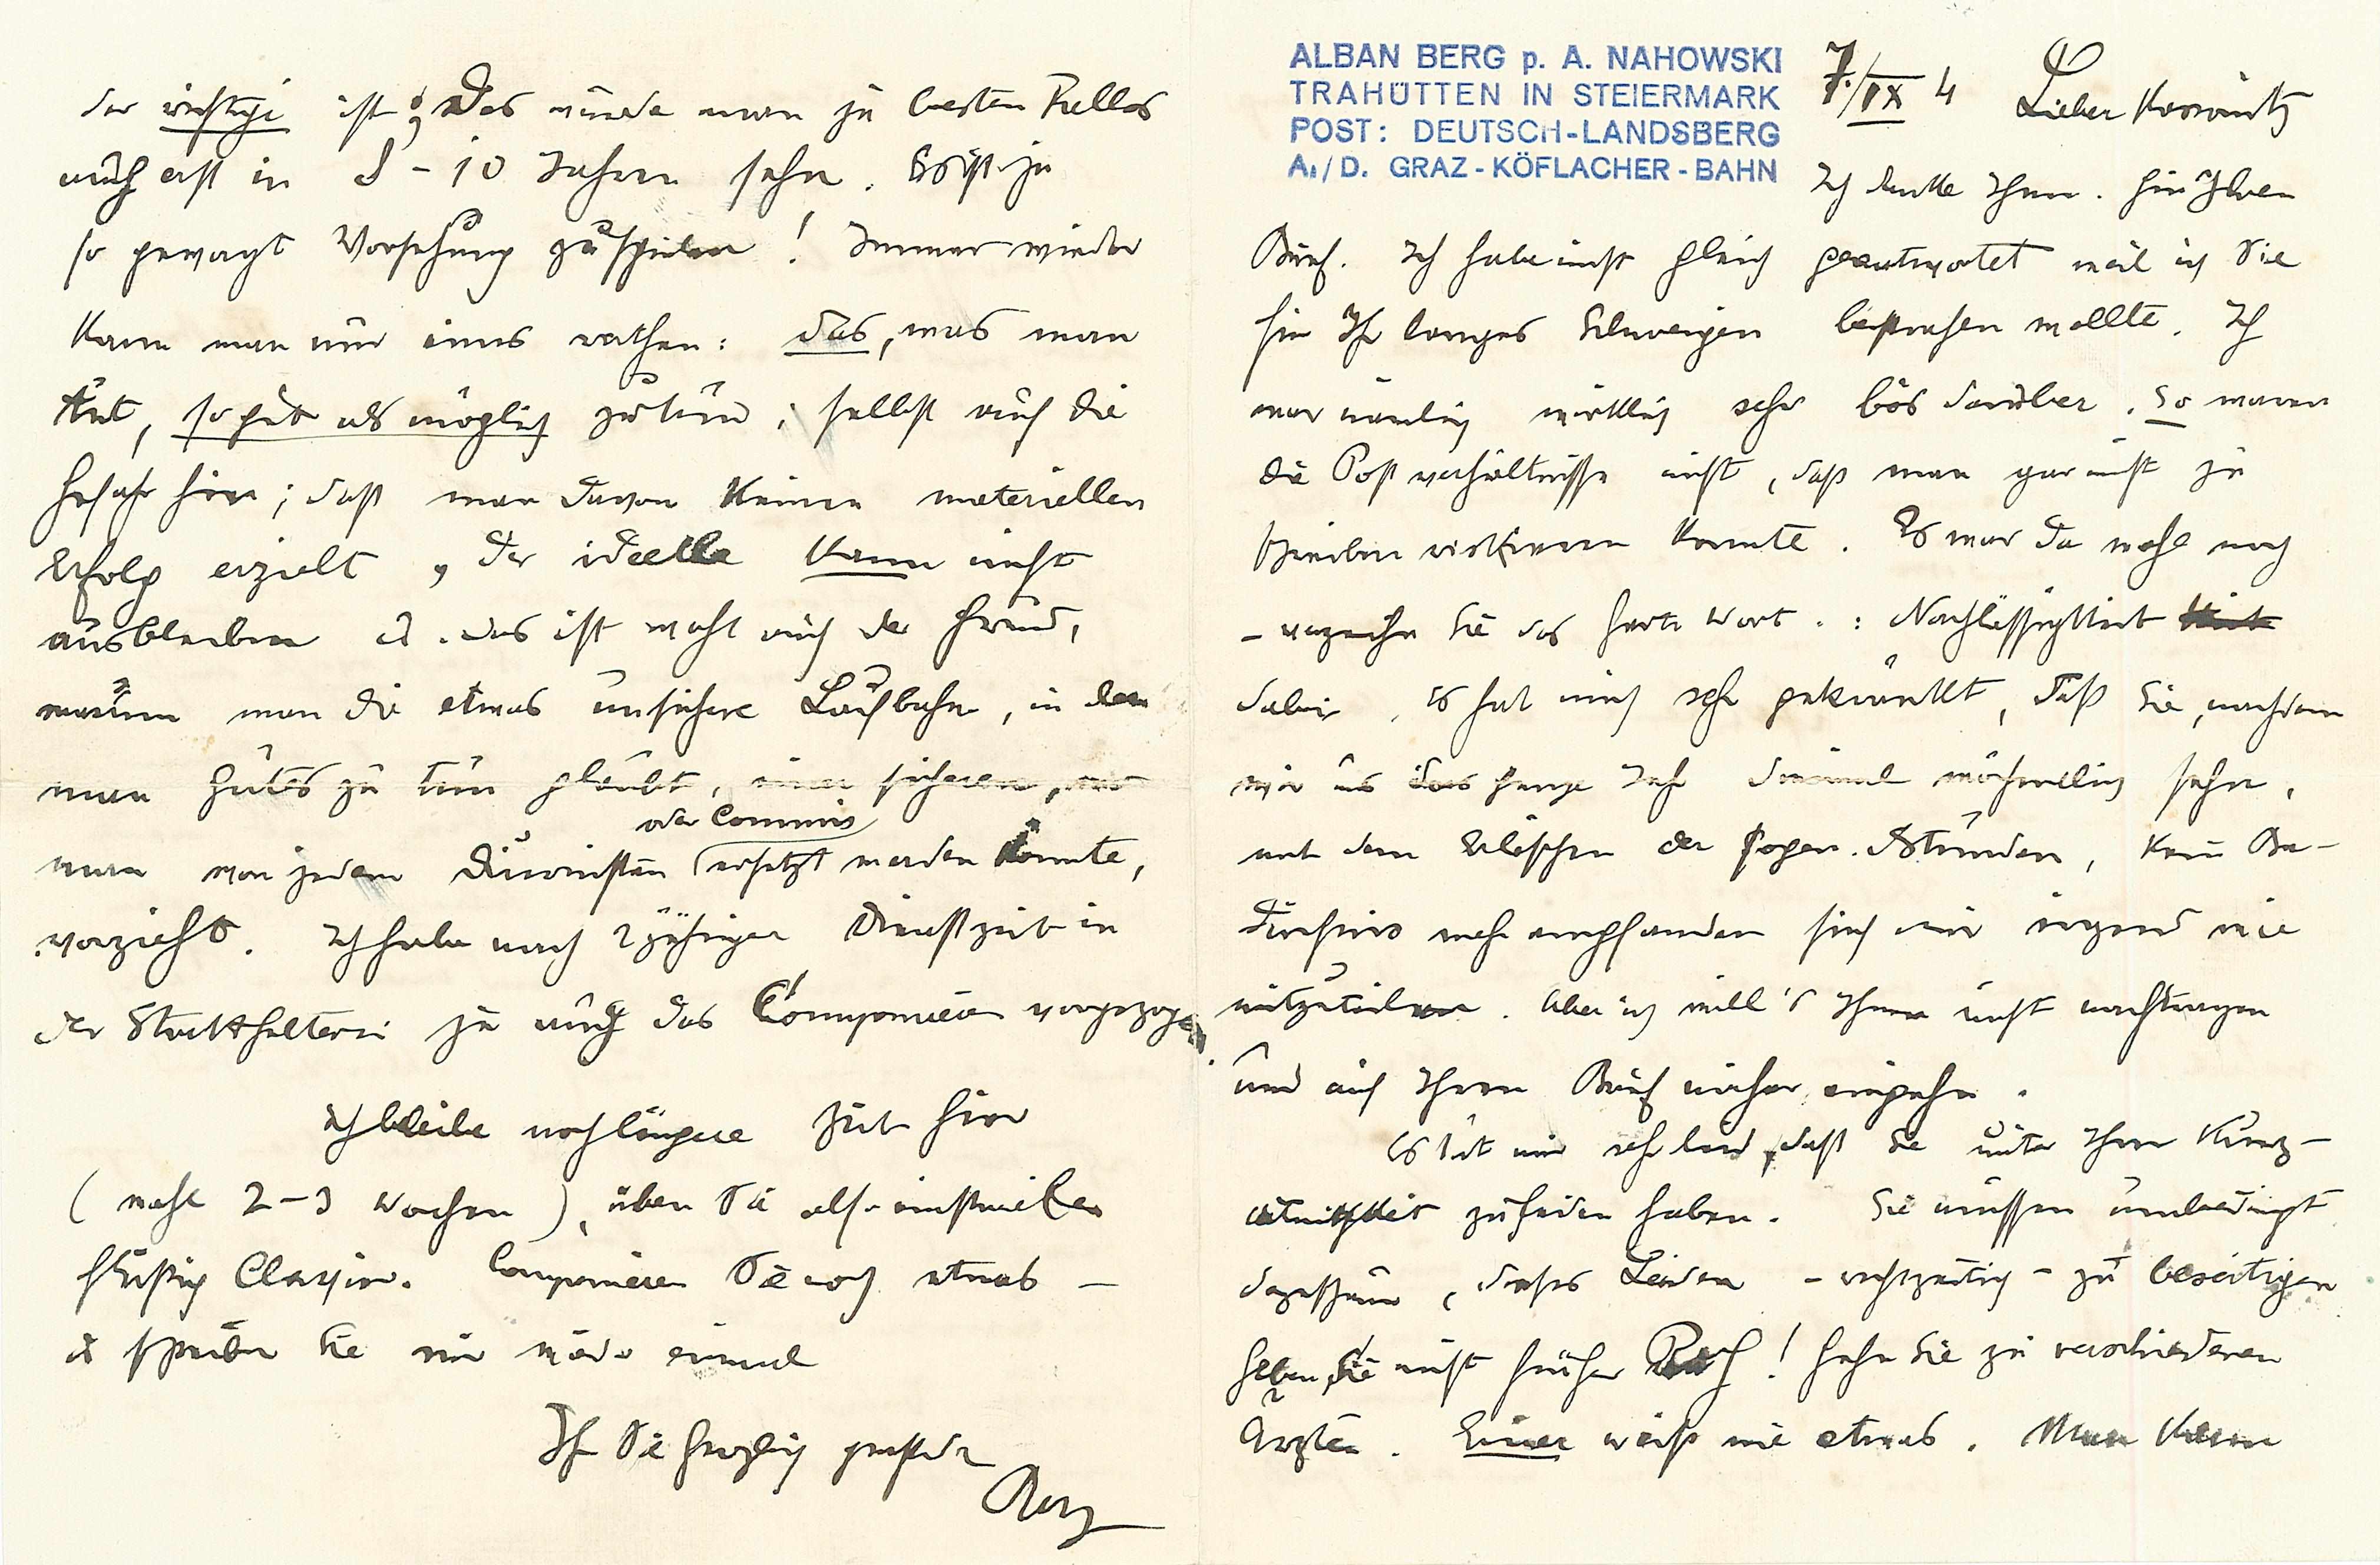 ALBAN BERG p. A. NAHOWSKI
TRAHÜTTEN IN STEIERMARK
POST: DEUTSCH-LANDSBERG
A./D. GRAZ-KÖFLACHER-BAHN
7./IX 4 Lieber Kassowitz
Ich danke Ihnen für Ihren
Brief. Ich habe nicht gleich geantwortet weil ich Sie
für Ihr langes Schweigen bestrafen wollte. Ich
war nämlich wirklich sehr bös darüber. So waren
die Postverhältnisse nicht, daß man gar nicht zu
schreiben riskieren konnte. Es war da wohl noch
– verzeihn Sie das harte Wort. : Nachlässigkeit
dabei. Es hat mich sehr gekränkt, daß Sie, nachdem
wir uns das ganze Jahr dreimal wöchentlich sahen,
mit dem Erlöschen der sogen. Stunden, kein Be-
dürfnis mehr empfanden sich mir irgend wie
mitzuteilen. Aber ich will's Ihnen nicht nachtragen
und auf Ihren Brief näher eingehn.
Es tut mir sehr leid, daß Sie unter Ihrer Kurz-
atmigkeit zu leiden haben. Sie müssen unbedingt
dazuschaun, dieses Leiden – rechtzeitig – zu beseitigen
Geben Sie nicht früher Ruh! Gehn Sie zu verschiedenen
Ärzten. Einer weiß nie etwas. Man kann
der wichtige ist? Das würde man ja besten Falles
auch erst in 8–10 Jahren sehn. Es ist ja
so gewagt Vorsehung zu spielen! Immer wieder
kann man nur eines rathen: das, was man
tut, so gut als möglich zu tun; selbst auf die
Gefahr hin; daß man davon keinen materiellen
Erfolg erzielt, der ideelle kann nicht
ausbleiben u. das ist wohl auch der Grund,
warum man die etwas unsichere Laufbahn, in der
man Gutes zu tun glaubt, einer sicheren, wo
man von jedem Juristen (oder Commis) ersetzt werden könnte,
vorzieht. Ich habe nach 2jähriger Dienstzeit in
der Statthalterei ja auch das Componieren vorgezogen.
Ich bleibe noch längere Zeit hier
(wohl 2–3 Wochen), üben Sie also einstweilen
fleißig Clavier. Componieren Sie noch etwas –
u schreiben Sie mir wieder einmal
Ihr Sie herzlich grüßender
Berg